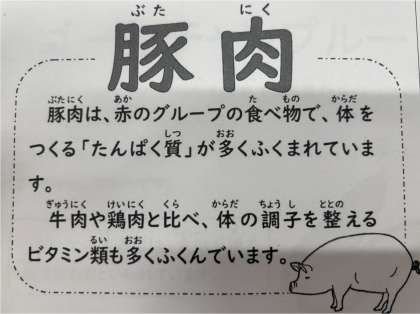 ぶた にく
豚肉
ぶたにく あか た もの からだ
豚肉は、赤のグループの食べ物で、体を
しつ おお
つくる「たんぱく質」が多くふくまれていま
す。
ぎゅうにく けいにく くら からだ ちょう し ととの
牛肉や鶏肉と比べ、体の調子を整える
るい おお
ビタミン類も多くふくんでいます。